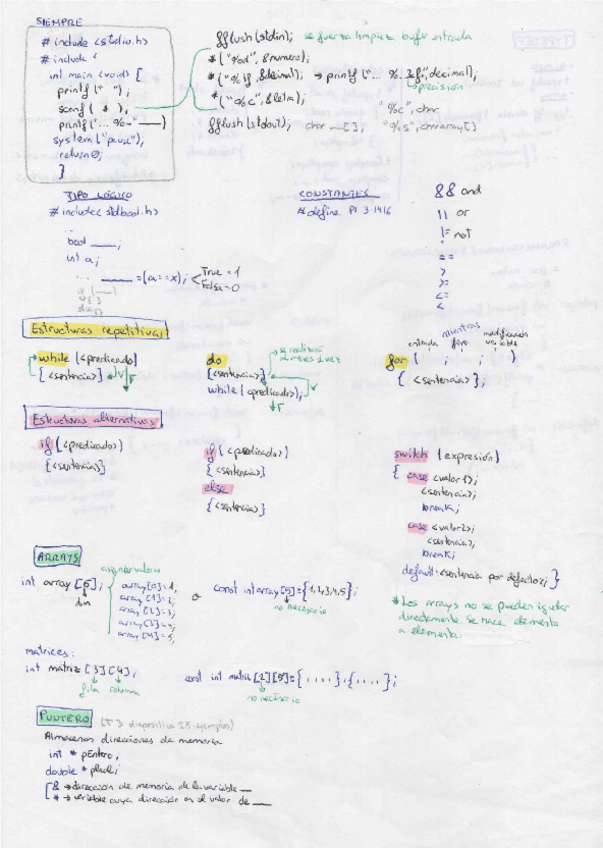 SIEMPRE
# include <stdio.h>
# include <
int main (void) {
printf (" ");
scanf ( * );
printf("...%-" ____)
system("pause");
return 0;
}
fflush (stdin); se fuerza limpieza bufer entrada
* ("%d", &numero);
* ("%lf", &decimal); → printf("... %.2f", decimal);
precisión
* ("%c", &letra); "%c", char
fflush (stdout); char __ [ ]; "%s", charárray[]
TIPO LÓGICO
# include < stdbool.h>
...
bool ____;
int a;
... ____ = (a == x); True = 1
False = 0
CONSTANTES
# define PI 3.1416
&& and
|| or
!= not
!
==
>
>=
<=
<
Estructuras repetitivas
while (<predicado>)
{<sentencia>}
V F
do
{<sentencia>}
while (<predicado>);
se realizará al menos 1 vez
V
F
entrada mientras fivo modificación variable
for ( ; ; )
{ <sentencia>};
Estructuras alternativas
if (<predicado>)
{<sentencia>}
if (<predicado>)
{<sentencia>}
else
{<sentencia>}
switch (expresión)
{ case <valor1>;
<sentencia>;
break;
case <valor2>;
<sentencia>;
break;
default: <sentencia por defecto>; }
ARRAYS
asignar valores
int array [5];
dim
array[0]=1;
array[1]=2;
array[2]=3;
array[3]=4;
array[4]=5;
o const int array[5]={1,2,3,4,5};
no necesario
* Los arrays no se pueden igualar
directamente. Se hace elemento
a elemento.
matrices:
int matriz [3][4];
fila columna
const int matriz [2][5]={....},{....};
no necesario
PUNTERO (T3 diapositiva 25-ejemplos)
Almacenan direcciones de memoria
int * pEntero;
double * pReal;
& → dirección de memoria de la variable __
* → variable cuya dirección es el valor de __